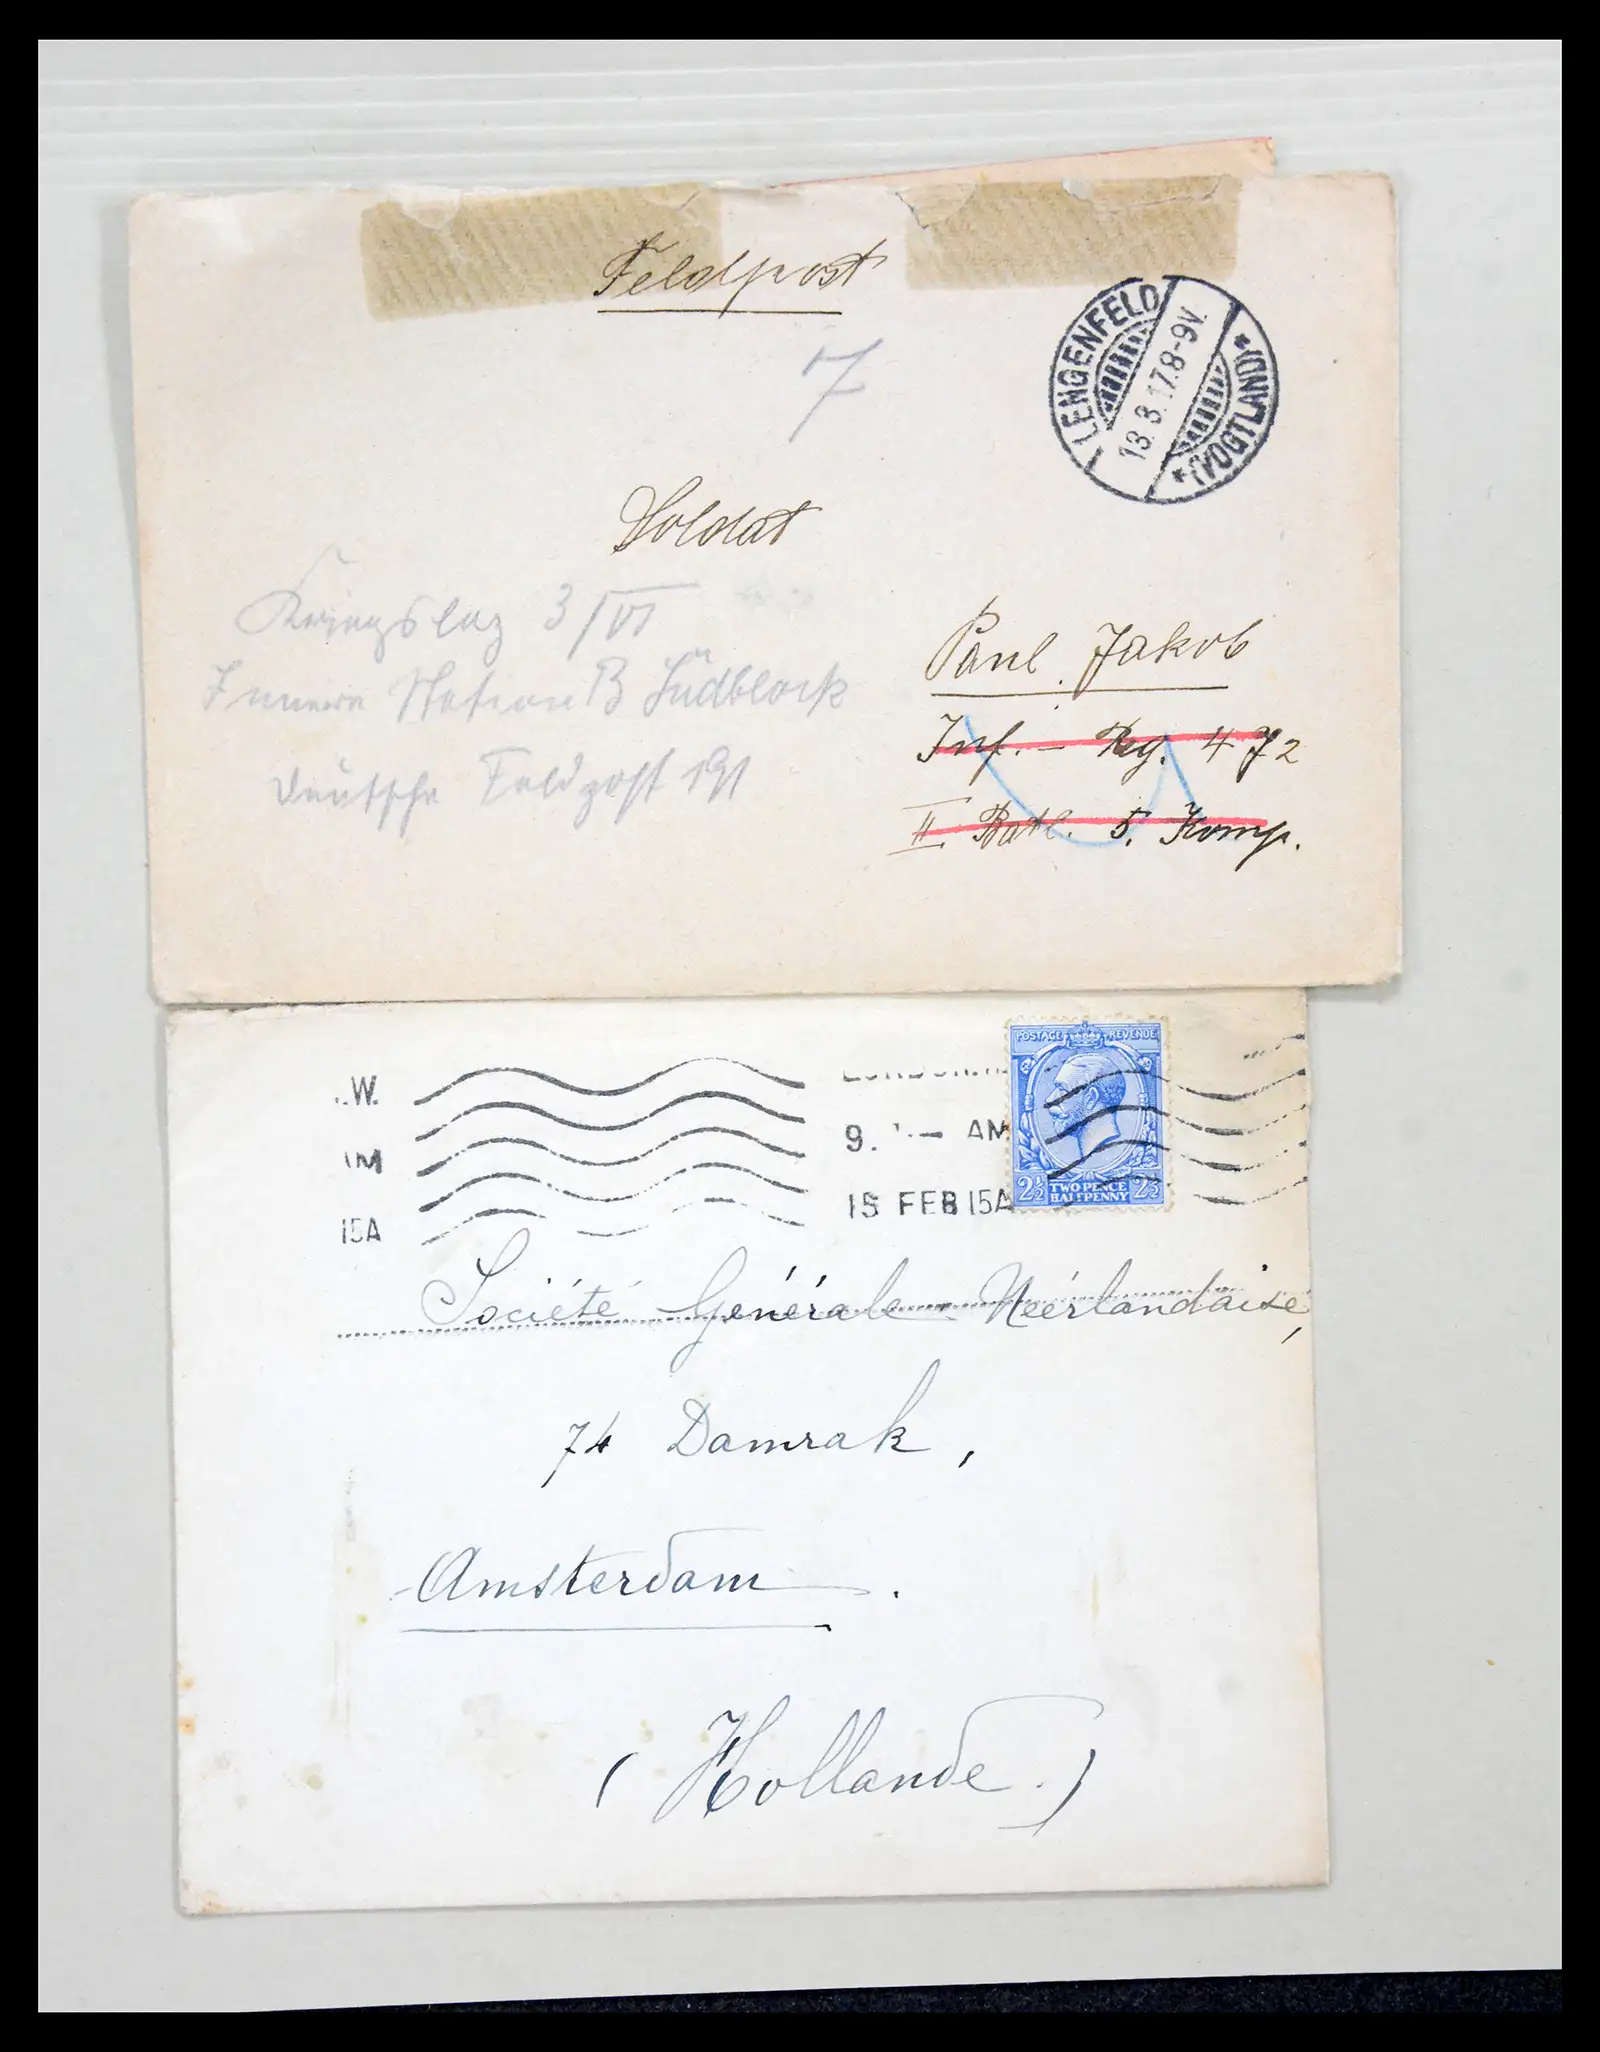 Feldpost
LENGENFELD
18. 8. 17. 8-9V.
*(VOGTLAND)*
7
Soldat
Kriegslaz 3/VI
Innere Station B Südblock
Deutsche Feldpost 191
Paul Jakob
Inf. - Reg. 472
II Batl. 5. Komp.
.W.
15A
9. — AM
15 FEB 15A
POSTAGE REVENUE
2½ TWO PENCE HALFPENNY 2½
Société Générale Néerlandaise,
74 Damrak,
Amsterdam.
(Hollande.)